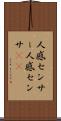 人感センサ
ー人感セン
サ